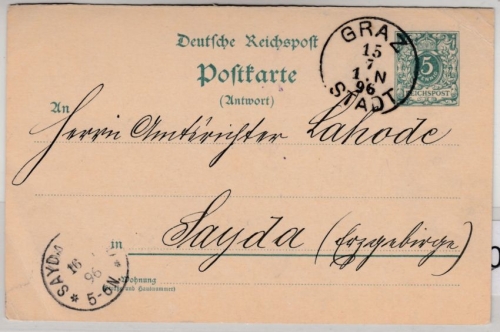 Deutsche Reichspost
Postkarte
(Antwort)
GRAZ
15
7
1.N
96
STADT
5
REICHSPOST
An
Herrn Amtsrichter Lahode
in Sayda (Erzgebirge)
SAYDA
16
96
* 5-6N. *
Wohnung